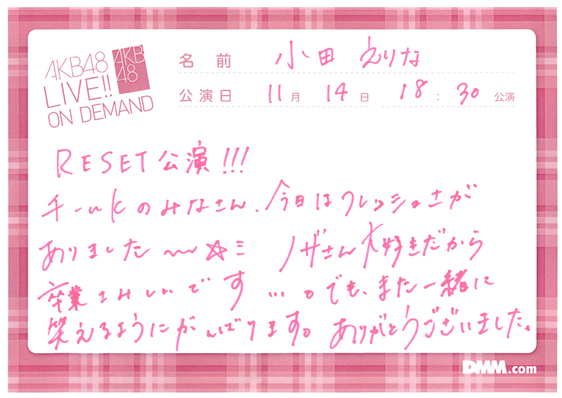 AKB48
LIVE!!
ON DEMAND
AKB
48
名前 小田えりな
公演日 11月14日 18:30公演
RESET公演!!!
チームKのみなさん、今日はフレッシュさが
ありました〜〜☆ミ ノザさん大好きだから
卒業さみしいです…。でも、また一緒に
笑えるようにがんばります。ありがとうございました。
DMM.com